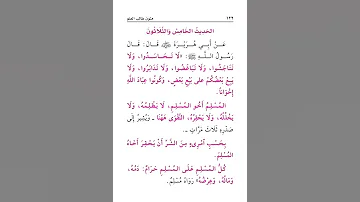 ١٢٢ متون طالب العلم
الْحَدِيثُ الْخَامِسُ وَالثَّلَاثُونَ
عَنْ أَبِي هُرَيْرَةَ ﷺ قَالَ: قَالَ
رَسُولُ اللَّهِ ﷺ: «لَا تَحَاسَدُوا، وَلَا
تَنَاجَشُوا، وَلَا تَبَاغَضُوا، وَلَا تَدَابَرُوا، وَلَا
يَبِعْ بَعْضُكُمْ عَلَى بَيْعِ بَعْضٍ، وَكُونُوا عِبَادَ اللَّهِ
إِخْوَانًا.
الْمُسْلِمُ أَخُو الْمُسْلِمِ، لَا يَظْلِمُهُ، وَلَا
يَخْذُلُهُ، وَلَا يَحْقِرُهُ، التَّقْوَى هَهُنَا - وَيُشِيرُ إِلَى
صَدْرِهِ ثَلَاثَ مَرَّاتٍ -.
بِحَسْبِ امْرِىءٍ مِنَ الشَّرِّ أَنْ يَحْقِرَ أَخَاهُ
الْمُسْلِمَ.
كُلُّ الْمُسْلِمِ عَلَى الْمُسْلِمِ حَرَامٌ: دَمُهُ،
وَمَالُهُ، وَعِرْضُهُ» رَوَاهُ مُسْلِمٌ.